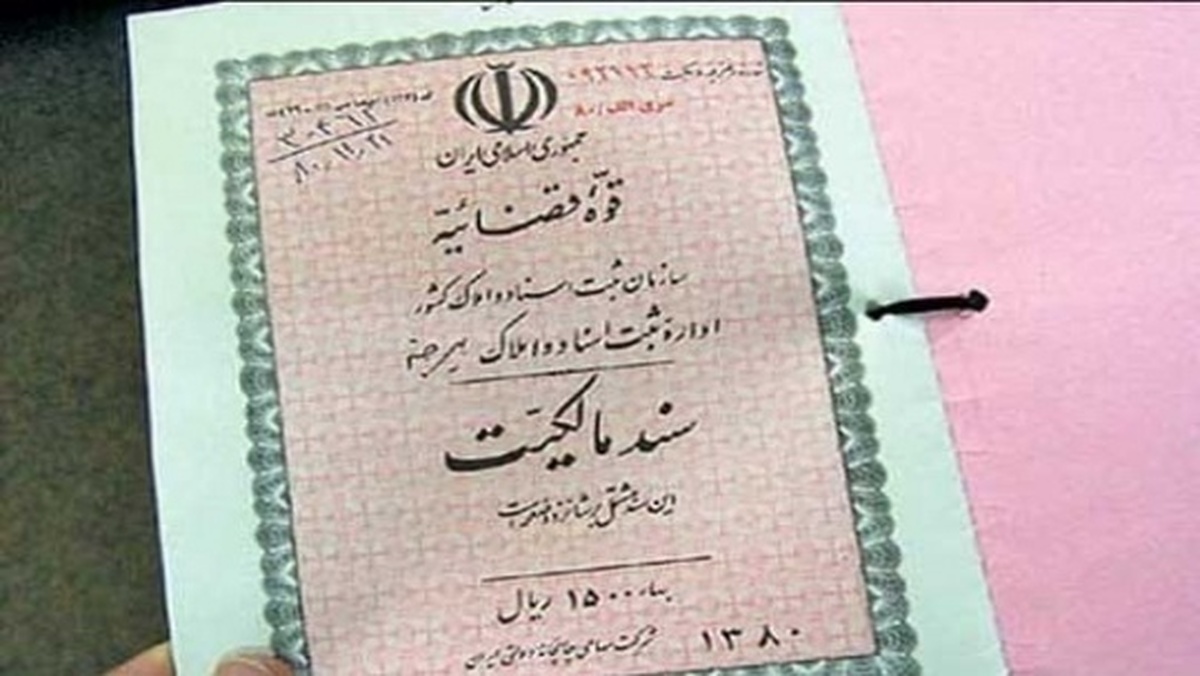 ۰۹۲۹۱۲
سری الف/۸۰
۳۰۴۶۱۲
۸۰،۱۱،۲۱
جمهوری اسلامی ایران
قوّهٔ قضائیّه
سازمان ثبت اسناد و املاک کشور
ادارهٔ ثبت اسناد و املاک
سند مالکیّت
این سند مشتمل بر شانزده صفحه است
بهاء ۱۵۰۰ ریال
۱۳۸۰ شرکت سهامی چاپخانه دولتی ایران